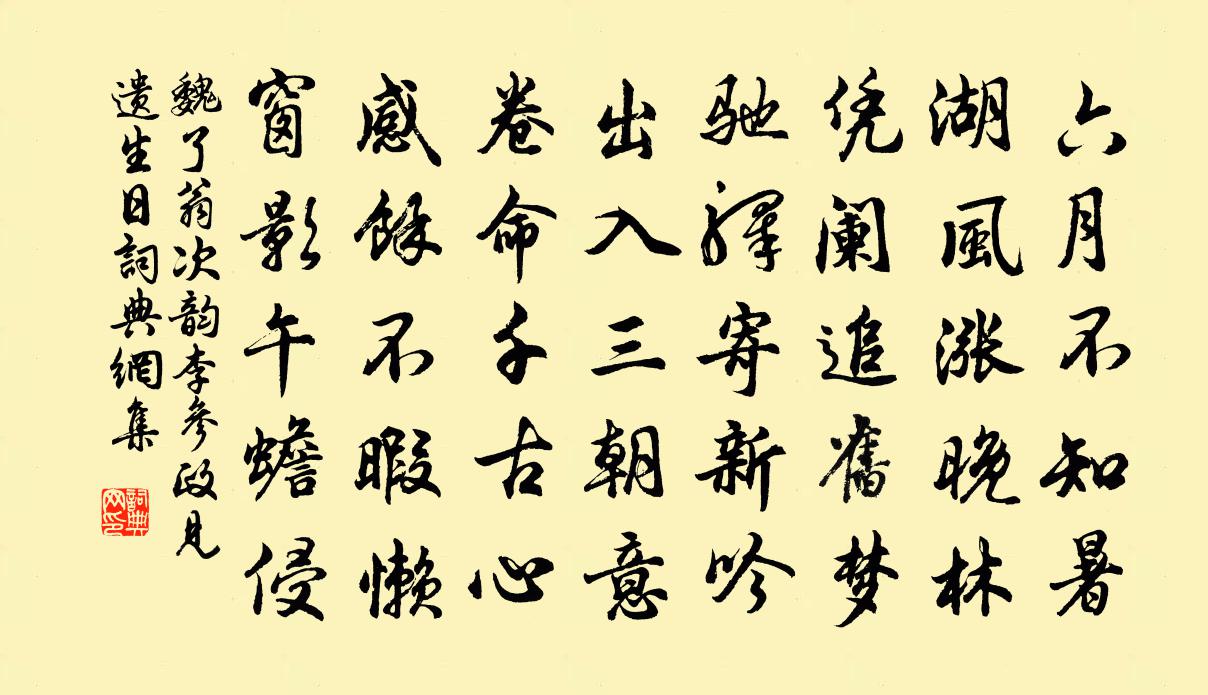 六月不知暑
湖風漲晚林
凭阑追舊梦
馳驛寄新吟
出入三朝意
卷命千古心
感餘不暇懶
窗影午蟾侵
魏了翁次韵李參政見
遗生日詞典網集
詞典网印